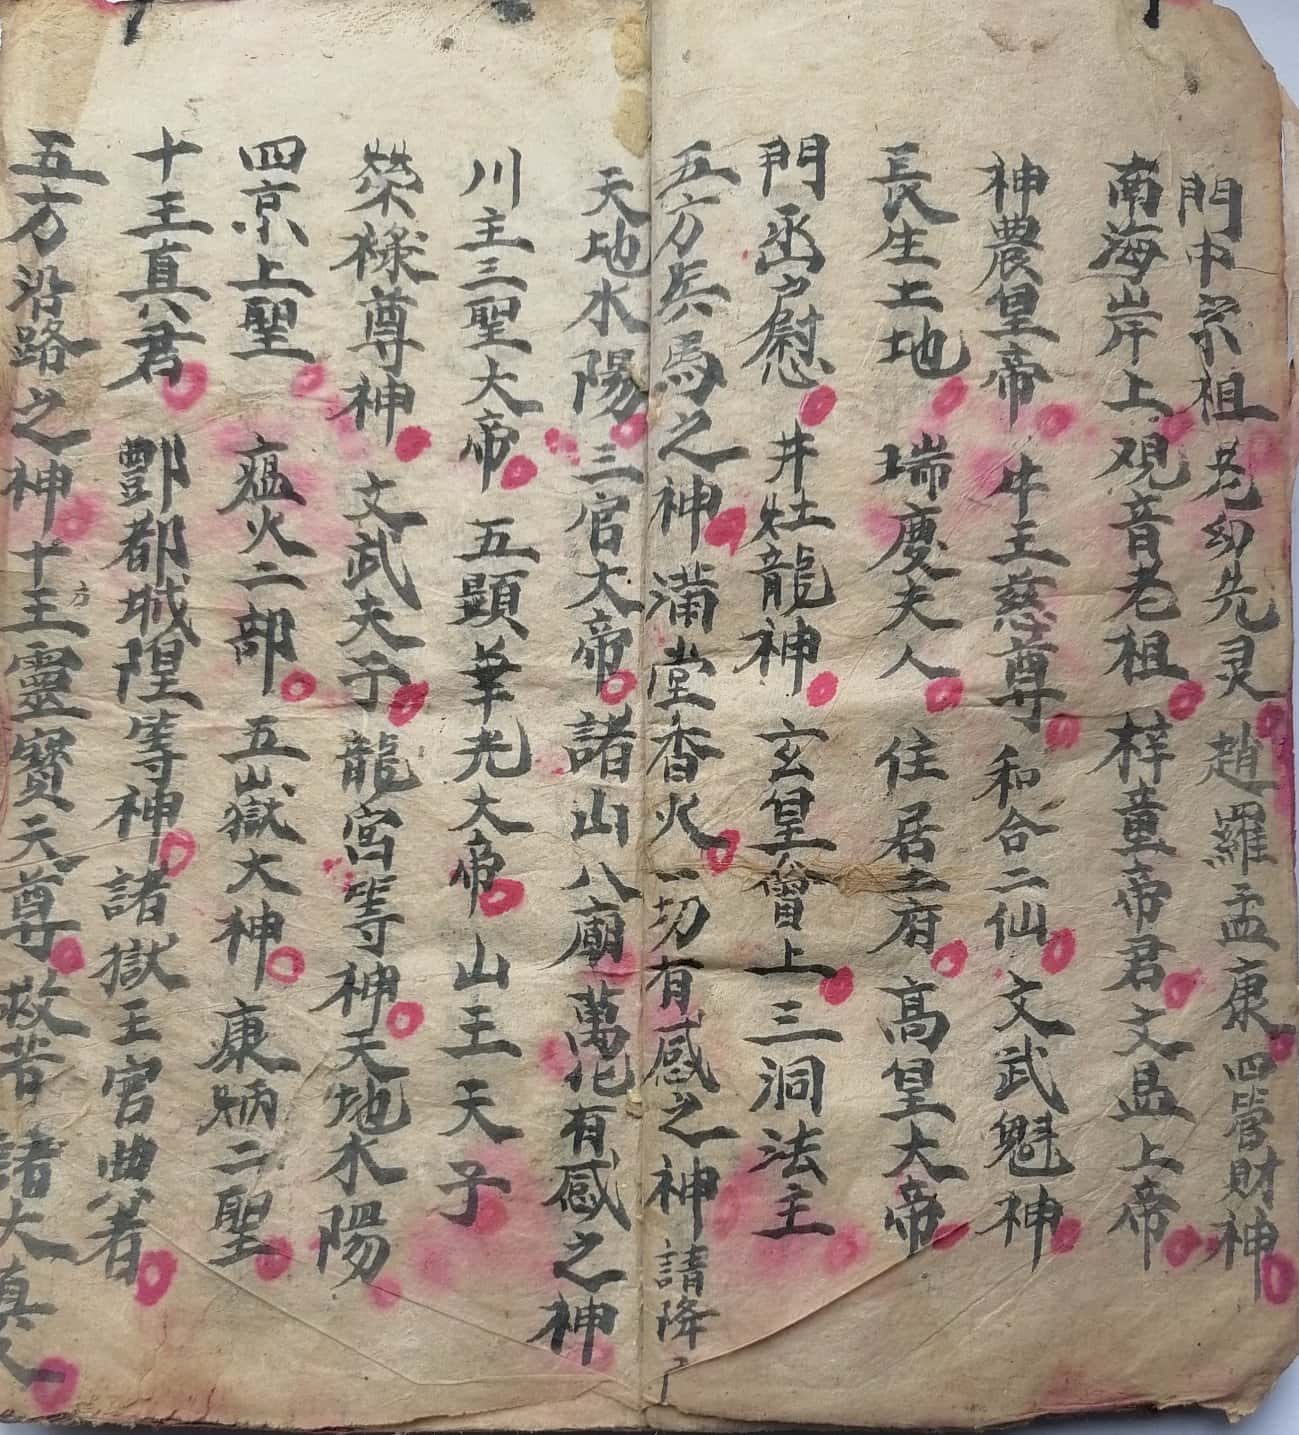 門中宗祖老幼先灵 趙羅孟康 四管財神
南海岸上观音老祖 梓童帝君 文昌上帝
神農皇帝 牛王慈尊 和合二仙 文武魁神
長生土地 瑞慶夫人 住居之府 高皇大帝
門丞户慰 井灶龍神 玄皇會上 三洞法主
五方兵馬之神 滿堂香火 一切有感之神 請降
天地水陽 三官大帝 諸山八廟 萬化有感之神
川主三聖大帝 五顯華光大帝 山王天子
榮祿尊神 文武夫子 龍宮等神 天地水陽
四京上聖 瘟火二部 五嶽大神 康炳二聖
十王真君 酆都城隍等神 諸獄王官典者
五方沿路之神 十方王靈寶天尊 救苦諸大真人